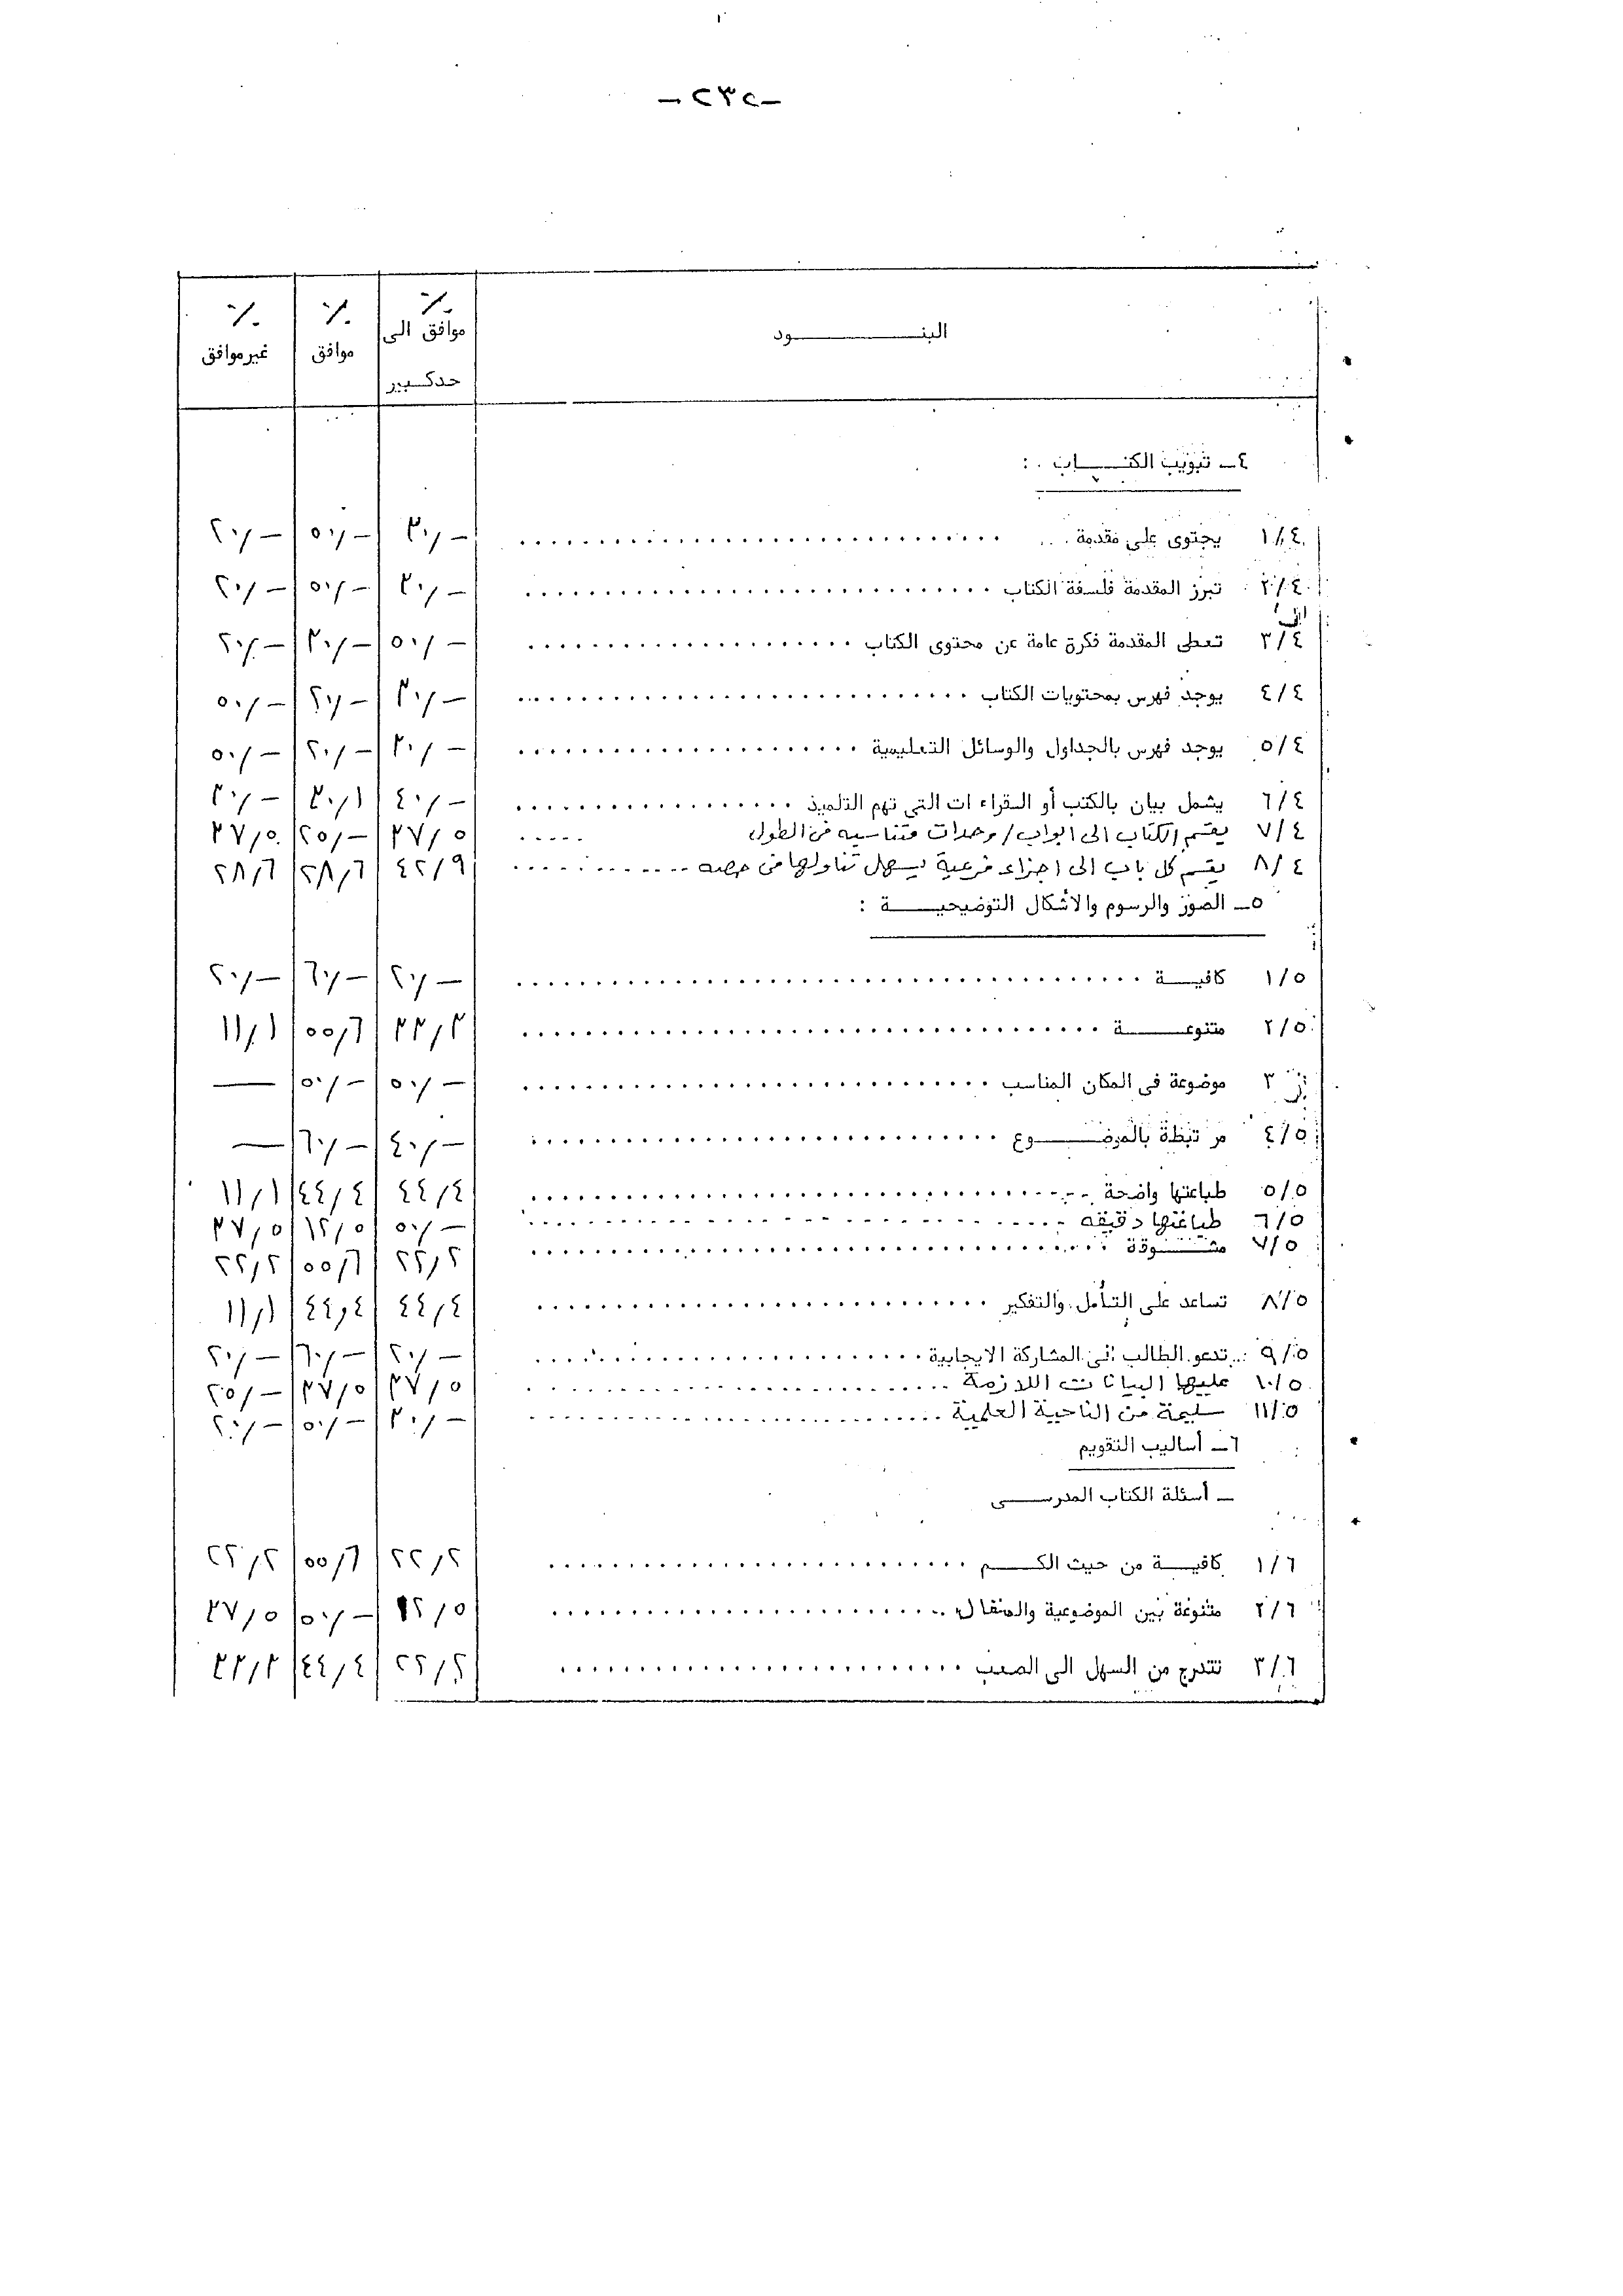 -٢٣٢-
البنـــــــــود ٪ موافق الى حدكـبير ٪ موافق ٪ غيرموافق
٤ـ تبويب الكتـــاب :
١/٤ يحتوى على مقدمة ٣٠/- ٥٠/- ٢٠/-
٢/٤ تبرز المقدمة فلسفة الكتاب ٣٠/- ٥٠/- ٢٠/-
٣/٤ تعطى المقدمة فكرة عامة عن محتوى الكتاب ٥٠/- ٣٠/- ٢٠/-
٤/٤ يوجد فهرس بمحتويات الكتاب ٣٠/- ٢٠/- ٥٠/-
٥/٤ يوجد فهرس بالجداول والوسائل التعليمية ٣٠/- ٢٠/- ٥٠/-
٦/٤ يشمل بيان بالكتب أو القراء ات التى تهم التلميذ ٤٠/- ٣٠/١ ٣٠/-
٧/٤ يقسم الكتاب الى ابواب/ وحدات متناسبه فى الطول ٣٧/٥ ٢٥/- ٣٧/٥
٨/٤ يقسم كل باب الى اجزاء فرعية يسهل تناولها فى حصه ٤٢/٩ ٢٨/٦ ٢٨/٦
٥ـ الصور والرسوم والأشكال التوضيحيـــة :
١/٥ كافيـــة ٢٠/- ٦٠/- ٢٠/-
٢/٥ متنوعـــــة ٣٣/٣ ٥٥/٦ ١١/١
٣ موضوعة فى المكان المناسب ٥٠/- ٥٠/- —
٤/٥ مرتبطة بالموضـــوع ٤٠/- ٦٠/- —
٥/٥ طباعتها واضحة ٤٤/٤ ٤٤/٤ ١١/١
٦/٥ طباعتها دقيقه ٥٠/- ١٢/٥ ٣٧/٥
٧/٥ مشـــوقة ٢٢/٢ ٥٥/٦ ٢٢/٢
٨/٥ تساعد على التأمل والتفكير ٤٤/٤ ٤٤/٤ ١١/١
٩/٥ تدعو الطالب الى المشاركة الايجابية ٢٠/- ٦٠/- ٢٠/-
١٠/٥ عليها البيانات اللازمة ٣٧/٥ ٣٧/٥ ٢٥/-
١١/٥ سليمة من الناحية العلمية ٣٠/- ٥٠/- ٢٠/-
٦ـ أساليب التقويم
ـ أسئلة الكتاب المدرســـى
١/٦ كافيـــة من حيث الكـــم ٢٢/٢ ٥٥/٦ ٢٢/٢
٢/٦ متنوعة بين الموضوعية والمقال ١٢/٥ ٥٠/- ٣٧/٥
٣/٦ تتدرج من السهل الى الصعب ٢٢/٢ ٤٤/٤ ٣٣/٣